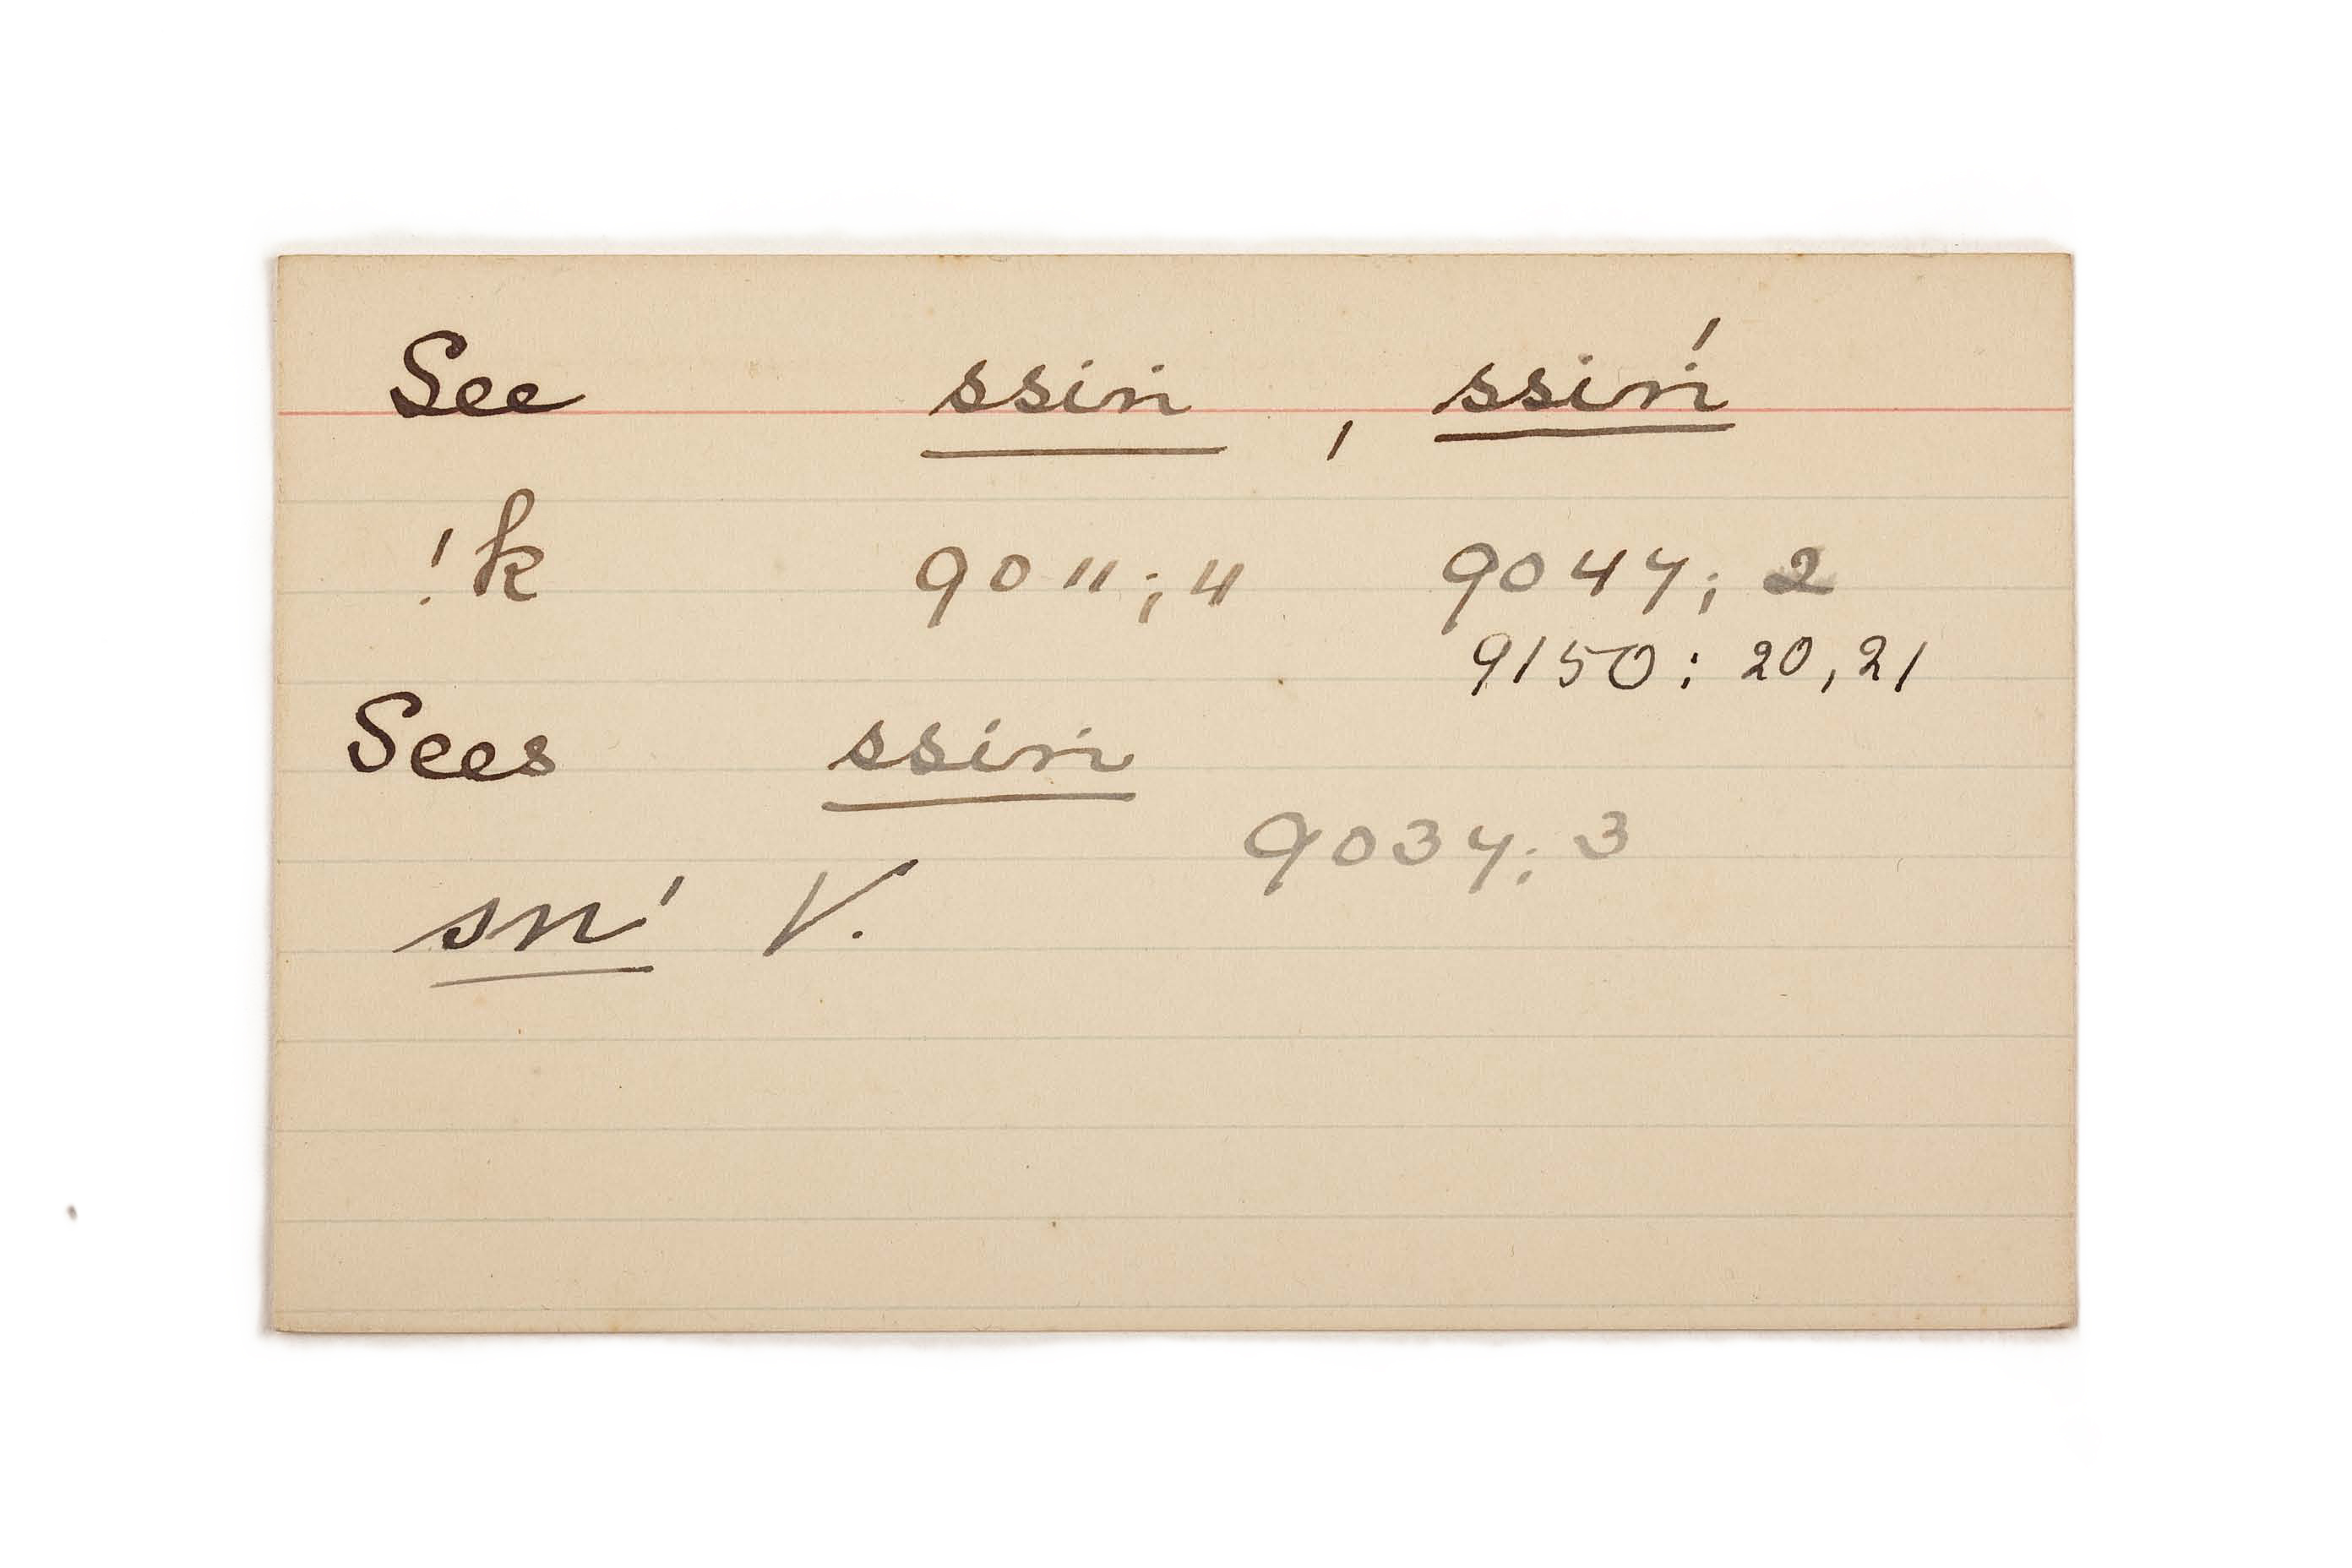 See ssiṅ , ssiṅ'
!k 9011; 11 9047; 2
9150: 20, 21
Sees ssiṅ
9037; 3
sn' V.